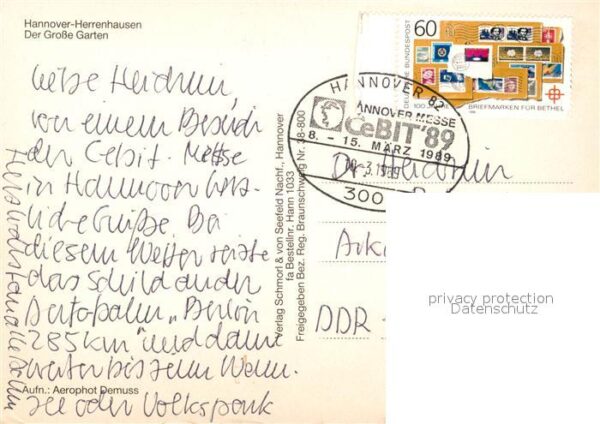 Hannover-Herrenhausen
Der Große Garten
Liebe Heidrun,
von einem Besuch
der Cebit-Messe
in Hannover herz-
liche Grüße. Bei
diesem Wetter reizte
das Schild an der
Autobahn „Berlin
285 km" und dann
weiter bis zum Wann-
see oder Volkspark
Aufn.: Aerophot Demuss
Verlag Schmorl & von Seefeld Nachf., Hannover
fa Bestellnr. Hann 1033
Freigegeben Bez. Reg. Braunschweig Nr. 38-600
60
DEUTSCHE BUNDESPOST
100 JAHRE
BRIEFMARKEN FÜR BETHEL
HANNOVER 82
HANNOVER MESSE
CeBIT'89
8. - 15. MÄRZ 1989
3.1989
300
Dr. Heidrun
DDR -
privacy protection
Datenschutz